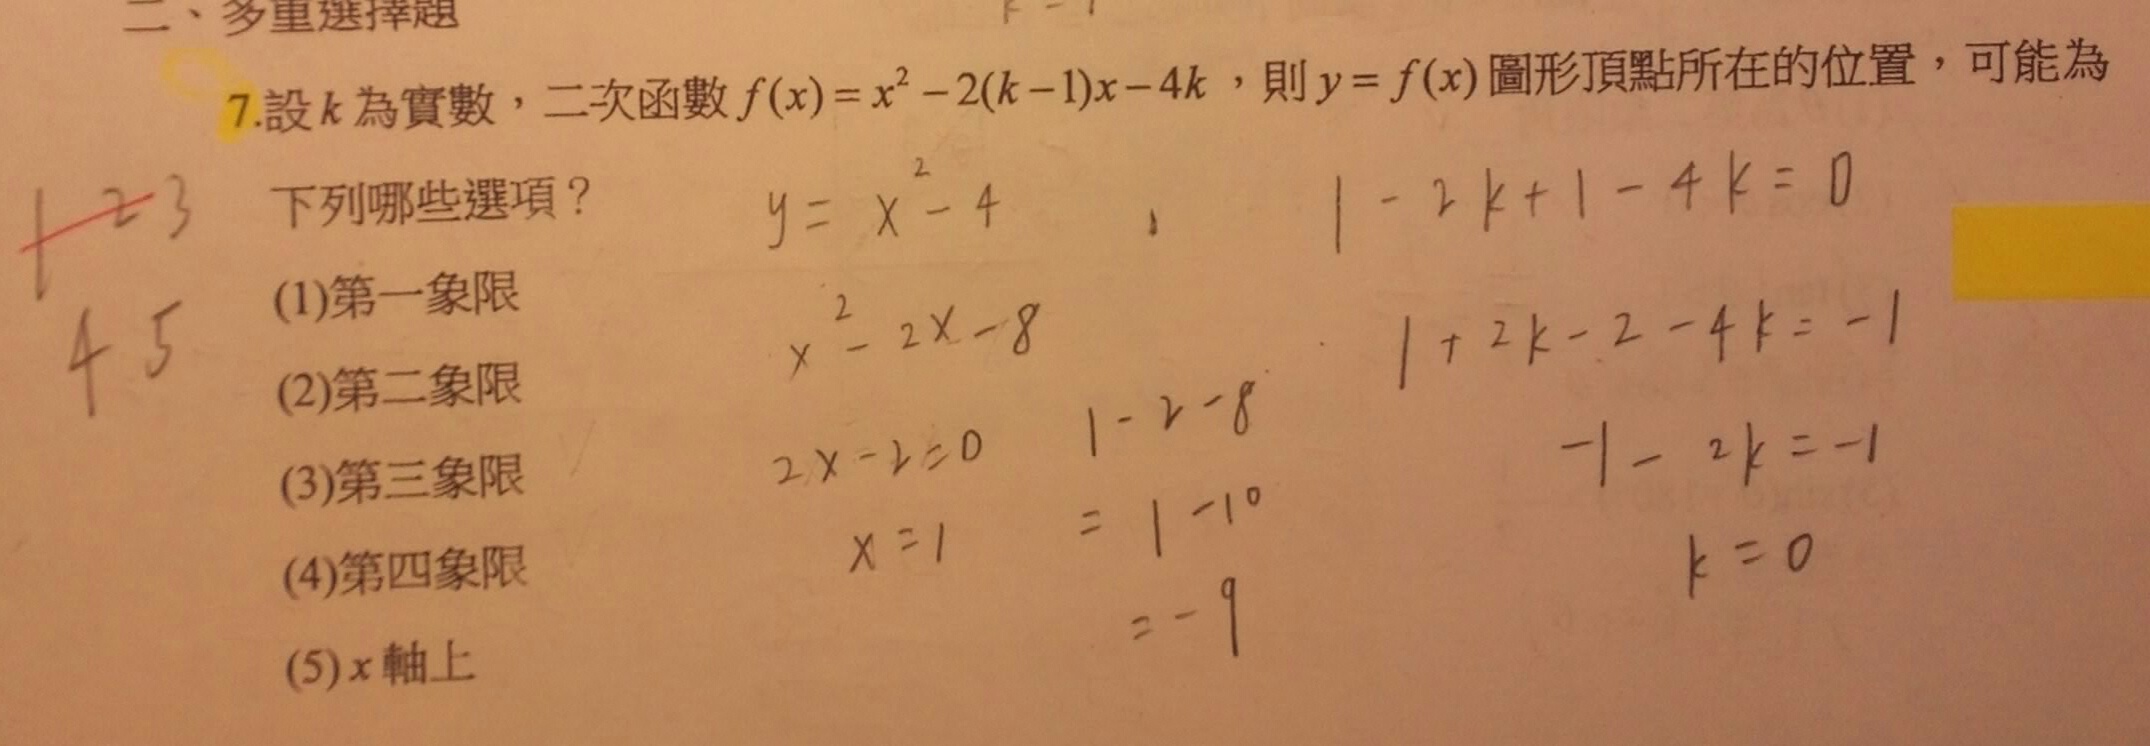 二、多重選擇題
7.設 k 為實數，二次函數 f(x) = x² − 2(k−1)x − 4k ，則 y = f(x) 圖形頂點所在的位置，可能為
下列哪些選項？
1 2 3
4 5
(1)第一象限
(2)第二象限
(3)第三象限
(4)第四象限
(5) x 軸上
y = x² - 4
x² - 2x - 8
2x - 2 = 0
x = 1
1 - 2 - 8
= 1 - 10
= - 9
1 - 2k + 1 - 4k = 0
1 + 2k - 2 - 4k = -1
-1 - 2k = -1
k = 0